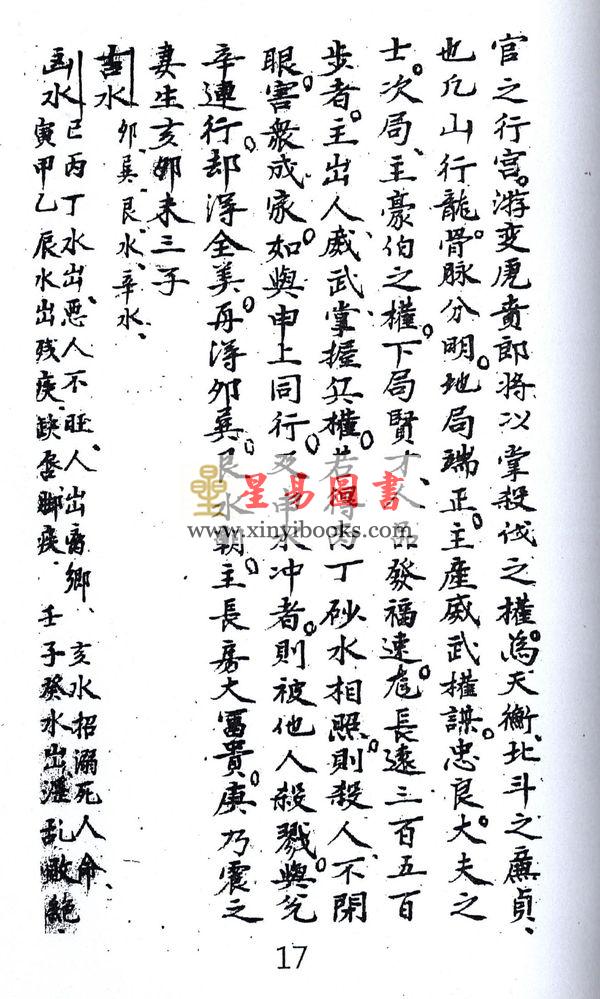 官之行宮。游变虎賁郎将以掌殺伐之權。為天衡、北斗之廉貞、
也凡山行龍骨脉分明。地局端正。主產威武權謀。忠良大夫之
士。次局、主豪伯之權。下局賢才人品發福速。長遠三百五百
步者。主出人威武掌握兵權。若得丙丁砂水相照。則殺人不閉
眼。害衆成家。如與申上同行。又申水冲者。則被他人殺戮。與兌
辛連行。却淂全美。再淂卯巽艮水朝。主長房大富貴。庚乃震之
妻生亥卯未三子
吉水 卯、巽、艮、水、辛水、
凶水 巳丙丁水出惡人不旺、人出离鄉、亥水招溺死人命、
寅甲乙辰水出残疾、缺唇脚疾、壬子癸水出淫乱敗絶、
星易圖書
www.xinyibooks.com
17